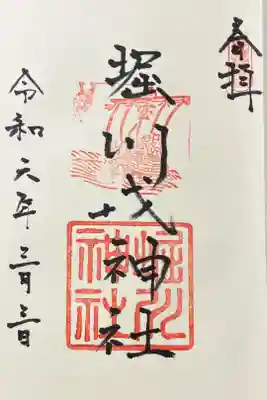 奉拝
堀川戎神社
堀川
神社
令和六年三月三日